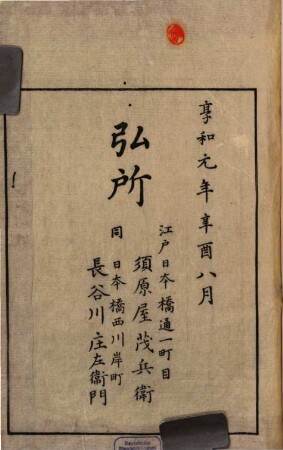 享和元年辛酉八月
弘所
江戸日本橋通一町目
須原屋茂兵衛
同 日本橋西川岸町
長谷川庄左衛門